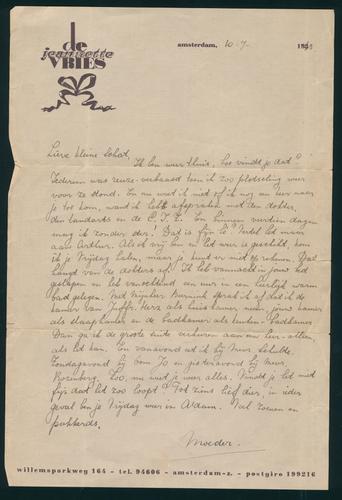 de
jeannette
VRIES
amsterdam, 10-7- 19
Lieve kleine schat,
Ik ben weer thuis, hoe vindt je dat?
Iedereen was reuze-verbaasd toen ik zoo plotseling weer
voor ze stond. En nu weet ik niet of ik nog een keer naar
je toe kom, want ik heb afspraken met den dokter,
den tandarts en de En binnen veertien dagen
mag ik zonder ster! Dat is fijn hè? Vertel het maar
aan Arthur. Als of vrij ben en het weer is geschikt, kom
ik je Vrijdag halen, maar je moet er niet op rekenen. Dat
hangt van de dokters af. Ik heb vannacht in jouw bed
geslapen en heb vanochtend een uur in een heerlijk warm
bad gelegen. Met Mijnheer sprak ik af dat ik de
kamer van Juffr. Herz als huiskamer neem, jouw kamer
als slaapkamer en de badkamer als keuken-badkamer.
Dan ga ik de groote suite verhuren aan een heer-alleen,
als het kan. En vanavond eet ik bij Mevr. Schulte.
Zondagavond bij bom Jo en gisteravond bij Mevr.
Rozenberg. Zoo, nu weet je weer alles. Vindt je het niet
fijn dat het zoo loopt? Tot ziens lief dier, in ieder
geval ben je Vrijdag weer in A'dam. Veel zoenen en
pakkerds.
Moeder.
willemsparkweg 164 - tel. 94606 - amsterdam-z. - postgiro 199216